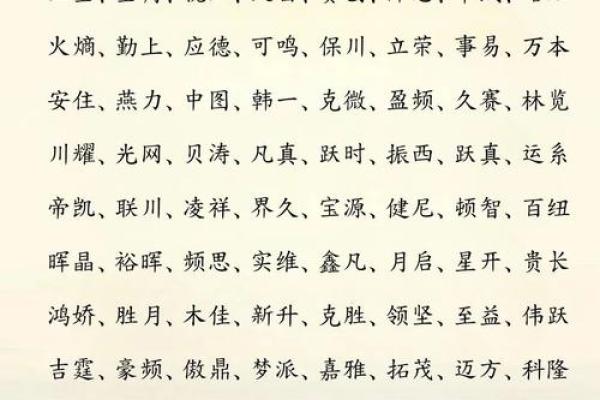 火熵、勤上、应德、可鸣、保川、立荣、事易、万本
安住、燕力、中图、韩一、克微、盈频、久赛、林览
川耀、光网、贝涛、凡真、跃时、振西、跃真、运系
帝凯、联川、凌祥、界久、宝源、健尼、顿智、百纽
晖晶、裕晖、频思、实维、鑫凡、月启、星开、贵长
鸿娇、胜月、木佳、新升、克胜、领坚、至益、伟跃
吉霆、豪频、傲鼎、梦派、嘉雅、拓茂、迈方、科隆